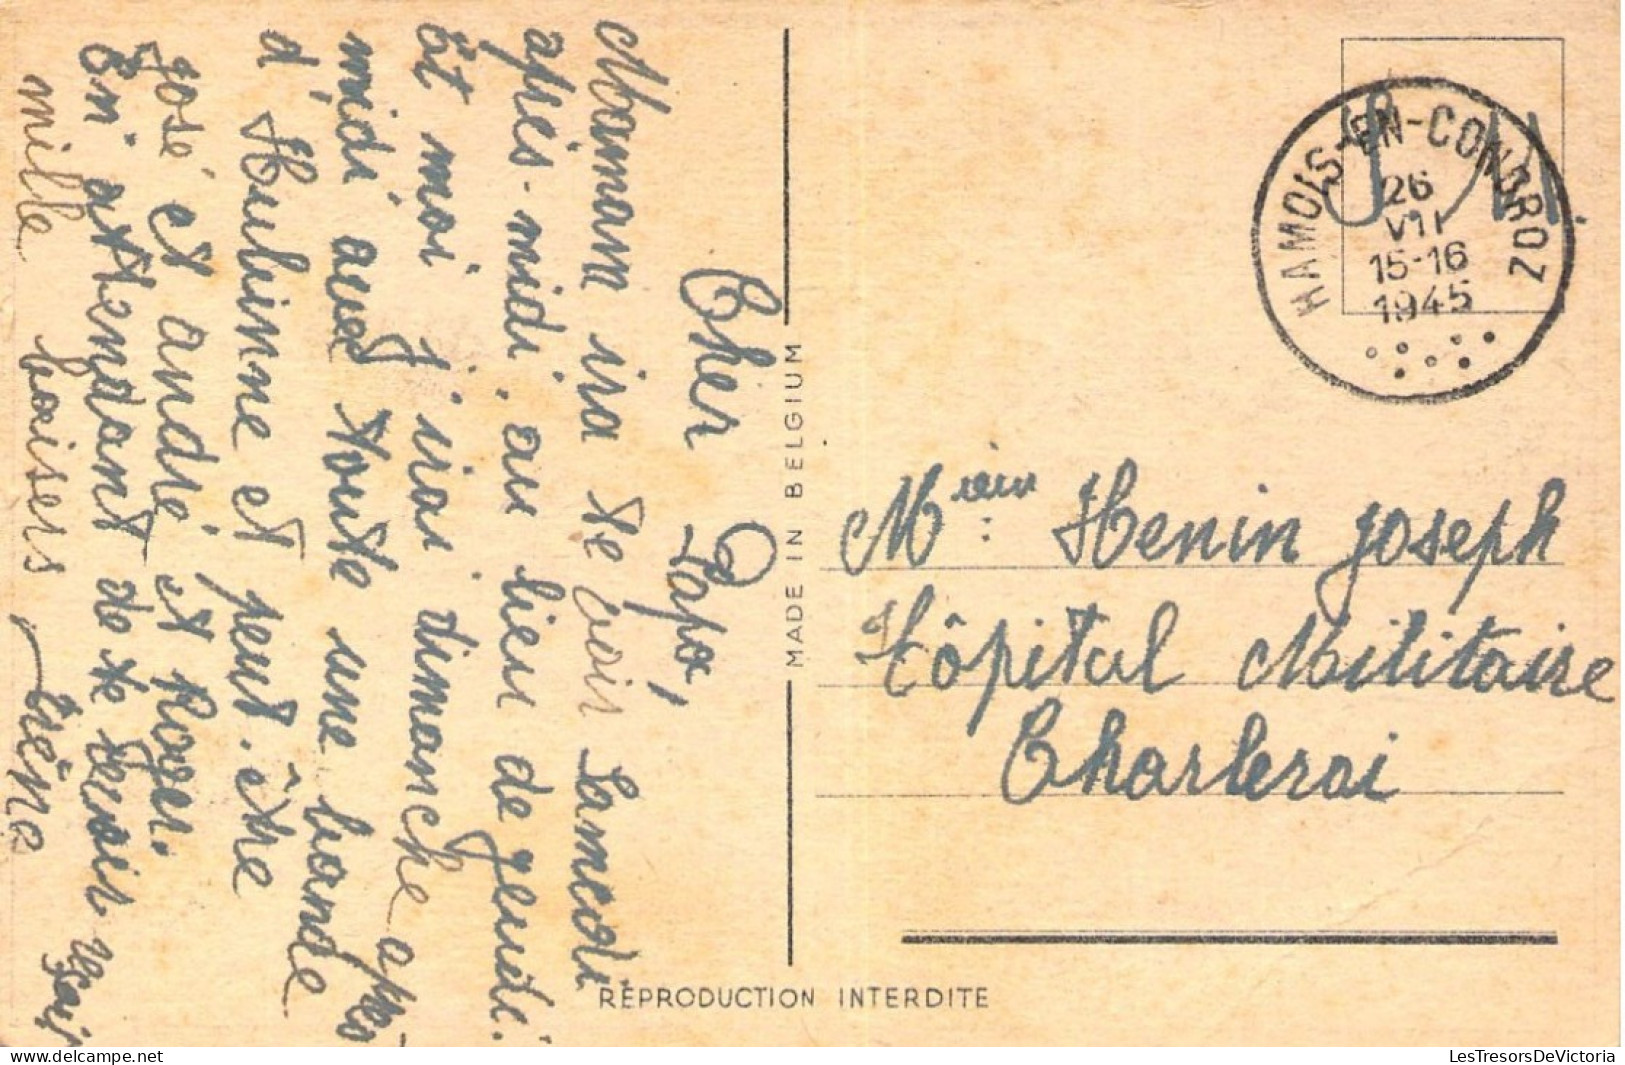 Cher Papa,
Maman ira te voir Samedi
après-midi, au lieu de jeudi.
Et moi j'irai dimanche après-
midi avec toute une bande
d'Hubinne et peut-être
José et André et Roger.
En attendant de te revoir reçois
mille baisers Irène
MADE IN BELGIUM
REPRODUCTION INTERDITE
S.M
HAMOIS-EN-CONDROZ
26
VII
15-16
1945
Henin Joseph
Hôpital Militaire
Charleroi
delcampe.net
LesTresorsDeVictoria